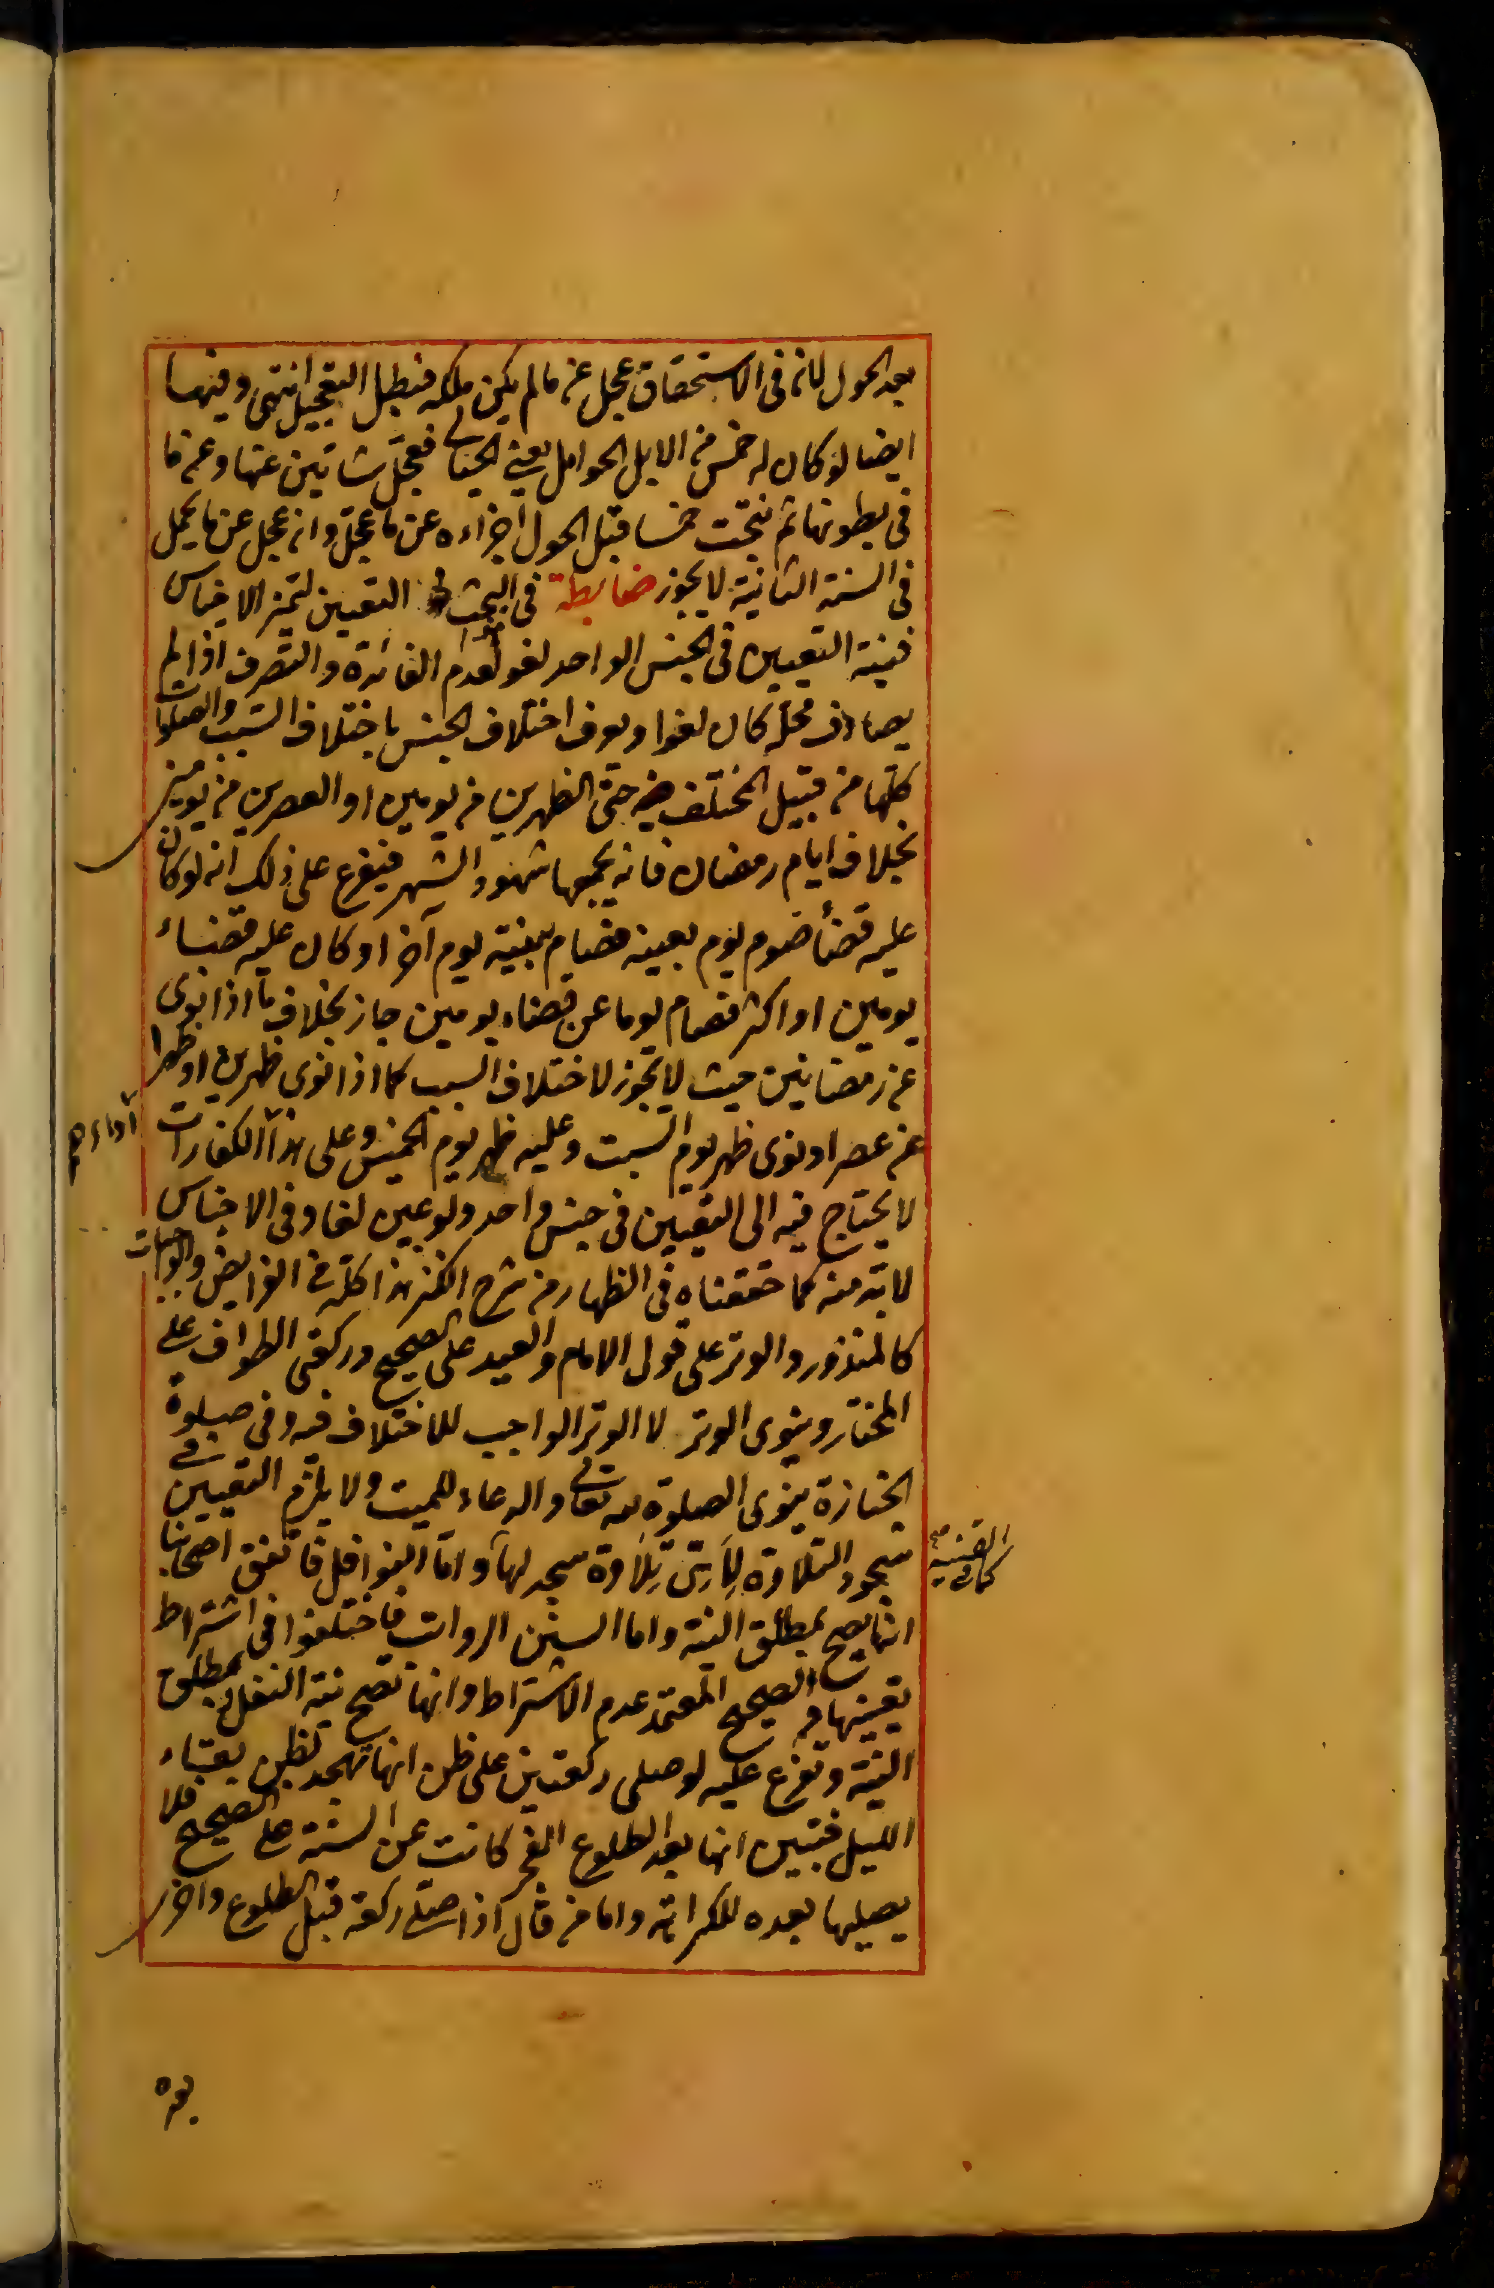 بعد الحول لانه فى الاستحقاق عجل عن ما لم يكن ملكه فبطل التعجيل انتهى وفيها
ايضا لو كان له خمس من الابل الحوامل يعنى الحبالى فعجل شاتين عنها وعن ما
فى بطونها ثم نتجت خمسا قبل الحول اجزاءه عن ما عجل وان عجل عن ما يحمل
فى السنة الثانية لا يجوز ضابطة فى البحث التعيين لتميز الاجناس
فنية التعيين فى الجنس الواحد لغو لعدم الفائدة والتصرف اذا لم
يصادف محله كان لغوا ويعرف اختلاف الجنس باختلاف السبب والصلوات
كلها من قبيل المختلف حتى الظهرين من يومين او العصرين من يومين
بخلاف ايام رمضان فانه يجمعها شهود الشهر فيفرع على ذلك انه لو كان
عليه قضأ صوم يوم بعينه فصام بنية يوم آخر او كان عليه قضاء
يومين او اكثر فصام يوما عن قضاء يومين جاز بخلاف ما اذا نوى
عن رمضانين حيث لا يجوز لاختلاف السبب كما اذا نوى ظهرين او ظهرا
عن عصر او نوى ظهر يوم السبت وعليه ظهر يوم الخميس وعلى هذا الكفارات
أداء
لا يحتاج فيه الى التعيين فى جنس واحد ولو عين لغا وفى الاجناس
لابد منه كما حققناه فى الظهار من شرح الكنز هذا كله فى الفرايض والواجبات
كالمنذور والوتر على قول الامام والعيد على الصحيح وركعتى الطواف على
المختار وينوى الوتر لا الوتر الواجب للاختلاف فيه وفى صلوة
الجنازة ينوى الصلوة لله تعالى والدعاء للميت ولا يلزم التعيين فى
سجود التلاوة لاى تلاوة سجد لها واما النوافل فاتفق اصحابنا
كما فى القنية
انها يصح بمطلق النية واما السنن الرواتب فاختلفوا فى اشتراط
تعيينها والصحيح المعتمد عدم الاشتراط وانها تصح بنية النفل وبمطلق
النية وتفرع عليه لو صلى ركعتين على ظن انها تهجد لظن بقاء
الليل فتبين انها بعد الطلوع الفجر كانت عن السنة على الصحيح فلا
يصليها بعده للكراهة واما من قال اذا صلى ركعة قبل الطلوع واخرى
بعده